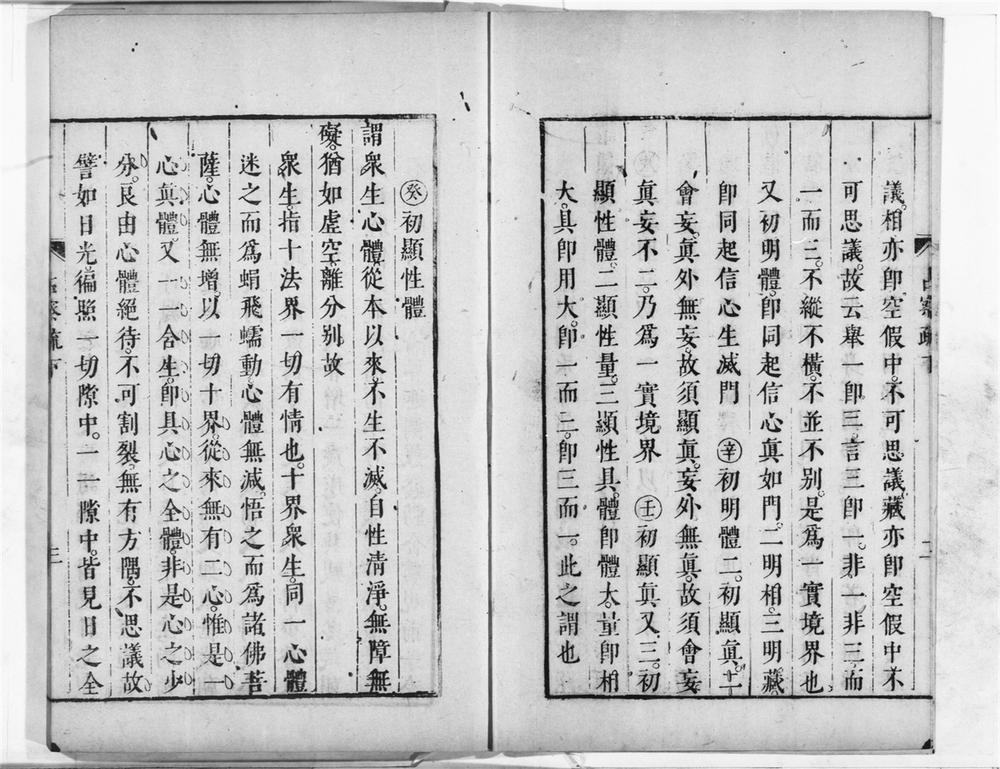 議。相亦卽空假中。不可思議。藏亦卽空假中。不
可思議。故云舉一卽三。言三卽一。非一非三。而
一而三。不縱不橫。不並不別。是爲一實境界也
又初明體。卽同起信心眞如門。二明相。三明藏。
卽同起信心生滅門 ㊛辛初明體二。初顯眞。二
會妄。眞外無妄。故須顯眞。妄外無眞。故須會妄
眞妄不二。乃爲一實境界 壬初顯眞又三。初
顯性體。二顯性量。三顯性具。體卽體大。量卽相
大。具卽用大。卽一而三。卽三而一。此之謂也
癸初顯性體
謂衆生心體。從本以來。不生不滅。自性清淨。無障無
礙。猶如虛空。離分別故
衆生。指十法界一切有情也。十界衆生。同一心體
迷之而爲蜎飛蠕動。心體無減。悟之而爲諸佛菩
薩。心體無增。以一切十界。從來無有二心。惟是一
心眞體。又一一含生。卽具心之全體。非是心之少
分。良由心體絕待。不可割裂。無有方隅。不思議故
譬如日光徧照一切隙中。一一隙中。皆見日之全
占察疏下
二
占察疏下
三